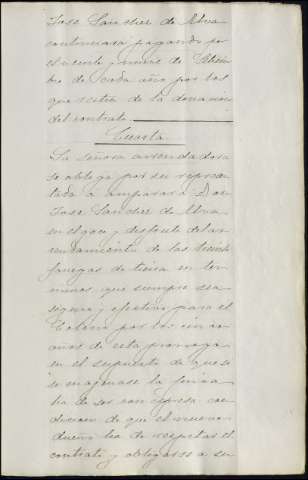 Jose Sanchez de Alva
continuara pagando por
el veinte y nueve de Setiem
bre de cada año por los
que reste de la duracion
del contrato
Cuarta
La señora arrendadora
se obliga por su represen
tada a amparar a Don
Jose Sanchez de Alva
en el goce y disfrute del ar
rendamiento de las treinta
fanegas de tierra en ter
minos, que siempre sea
seguro y efectivo para el
Colono por los cinco
años de esta prorroga
en el supuesto de que se
se enagenase la finca
ha de ser con espresa con
dicion de que el nuevo
dueño ha de respetar el
contrato y obligarse a su